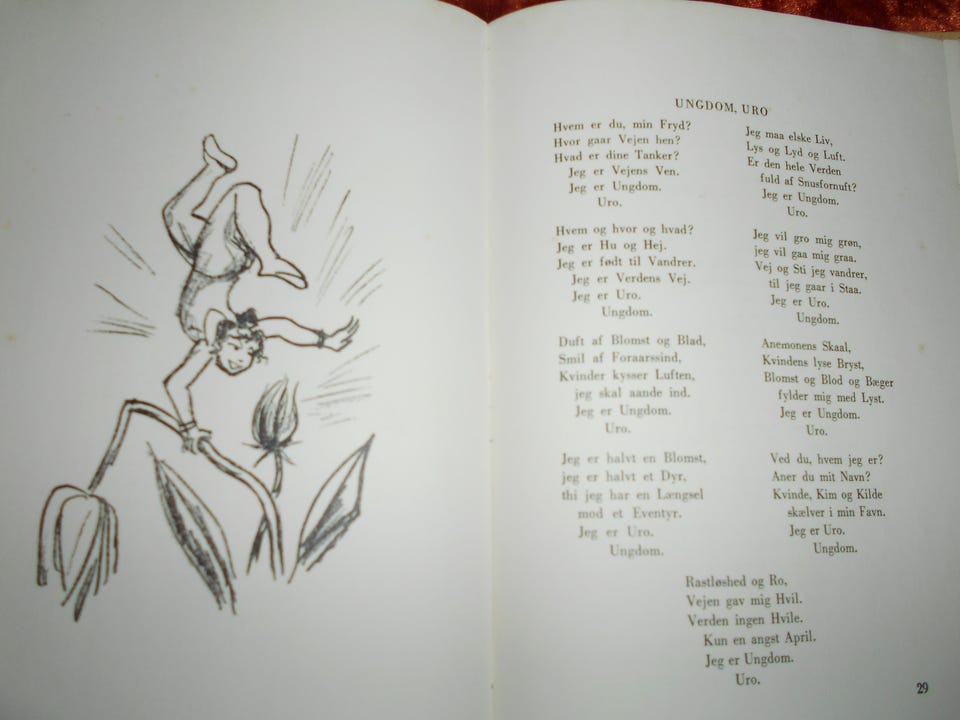 UNGDOM, URO
Hvem er du, min Fryd?
Hvor gaar Vejen hen?
Hvad er dine Tanker?
Jeg er Vejens Ven.
Jeg er Ungdom.
Uro.
Hvem og hvor og hvad?
Jeg er Hu og Hej.
Jeg er født til Vandrer.
Jeg er Verdens Vej.
Jeg er Uro.
Ungdom.
Duft af Blomst og Blad,
Smil af Foraarssind,
Kvinder kysser Luften,
jeg skal aande ind.
Jeg er Ungdom.
Uro.
Jeg er halvt en Blomst,
jeg er halvt et Dyr,
thi jeg har en Længsel
mod et Eventyr.
Jeg er Uro.
Ungdom.
Jeg maa elske Liv,
Lys og Lyd og Luft.
Er den hele Verden
fuld af Snusfornuft?
Jeg er Ungdom.
Uro.
Jeg vil gro mig grøn,
jeg vil gaa mig graa.
Vej og Sti jeg vandrer,
til jeg gaar i Staa.
Jeg er Uro.
Ungdom.
Anemonens Skaal,
Kvindens lyse Bryst,
Blomst og Blod og Bæger
fylder mig med Lyst.
Jeg er Ungdom.
Uro.
Ved du, hvem jeg er?
Aner du mit Navn?
Kvinde, Kim og Kilde
skælver i min Favn.
Jeg er Uro.
Ungdom.
Rastløshed og Ro,
Vejen gav mig Hvil.
Verden ingen Hvile.
Kun en angst April.
Jeg er Ungdom.
Uro.
29